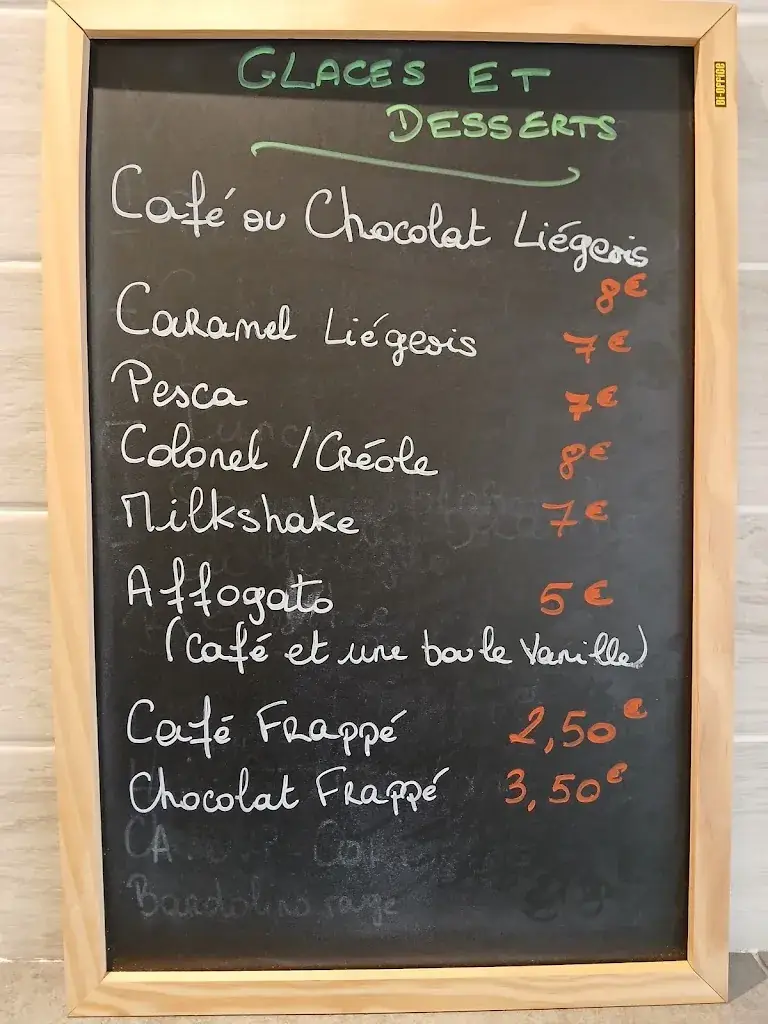 BI-OFFICE
GLACES ET
DESSERTS
Café ou Chocolat Liégeois
8€
Caramel Liégeois 7€
Pesca 7€
Colonel / Créole 8€
Milkshake 7€
Affogato 5€
(Café et une boule Vanille)
Café Frappé 2,50€
Chocolat Frappé 3,50€
Bardolino rouge